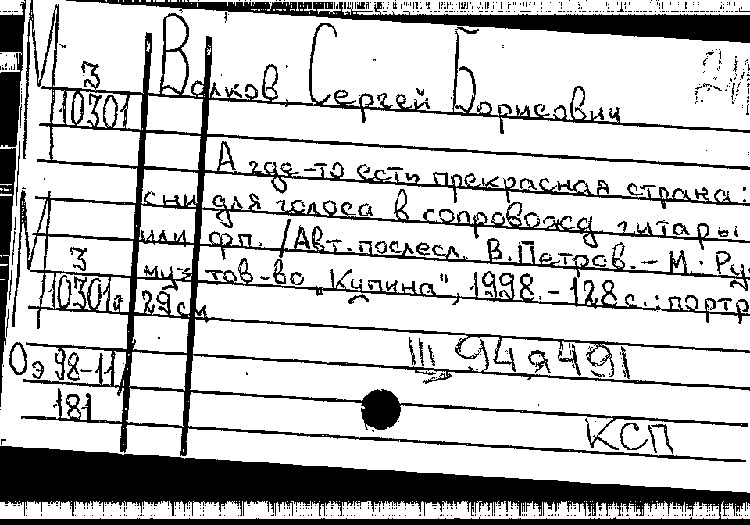 М З 10301
Волков, Сергей Борисович
А где-то есть прекрасная страна:
сни для голоса в сопровожд гитары
или фп. / Авт. послесл. В. Петров. – М.: Ру
муз тов-во „Купина", 1998. – 128 с.: портр
29 см
М З 10301а
III 94я491
Оэ 98-11/
181
КСП